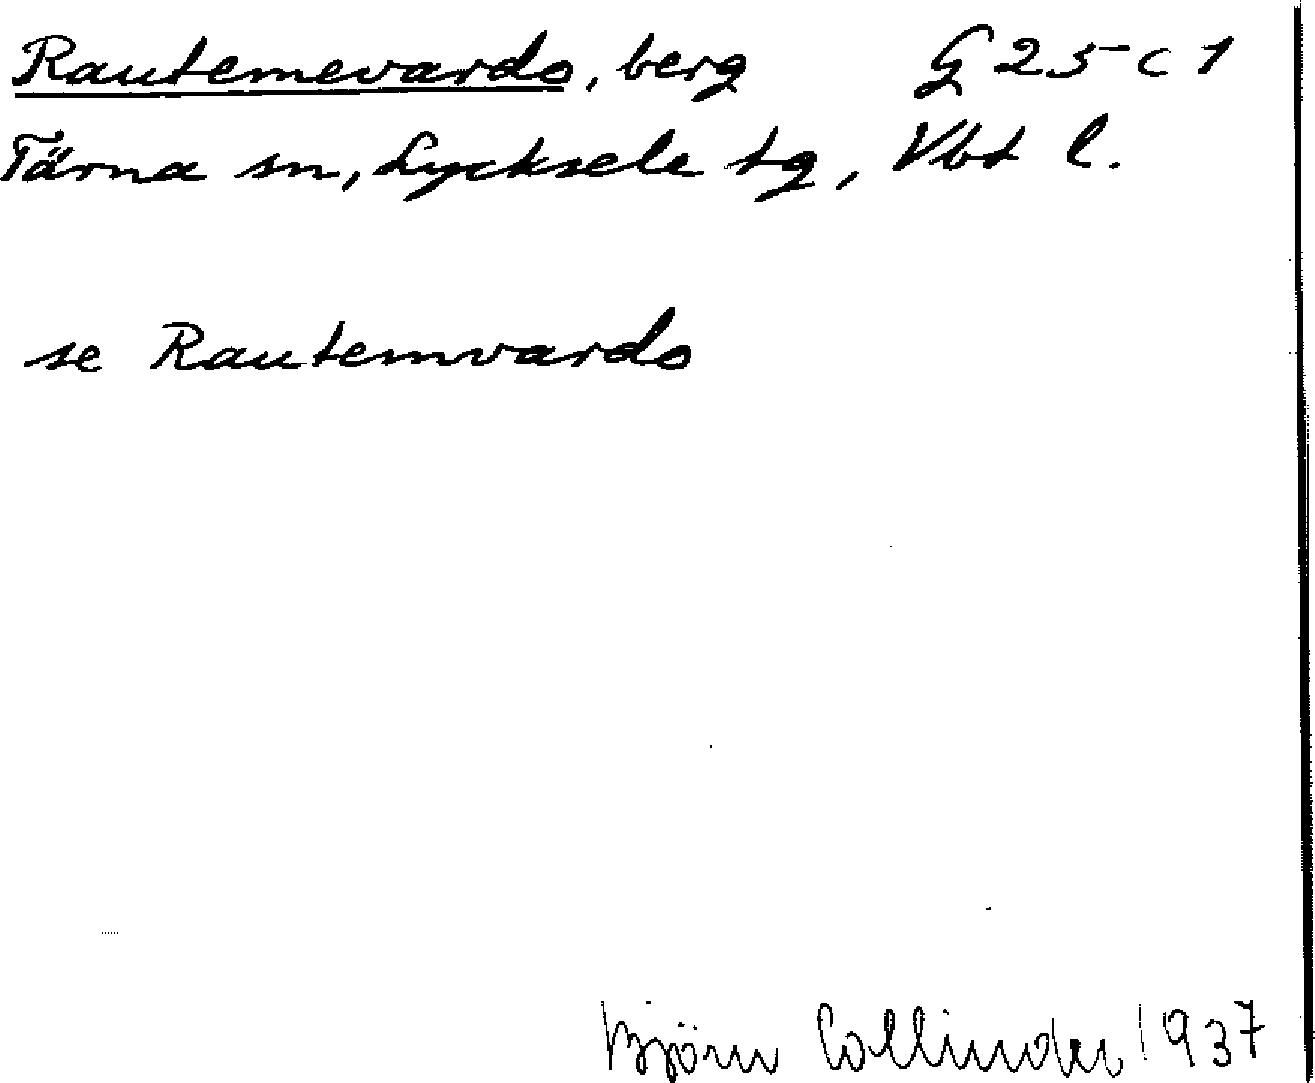 Rautemevardo, berg G 25 c 1
Tärna sn, Lycksele tg, Vbt l.
se Rautemvardo
Björn Collinder 1937